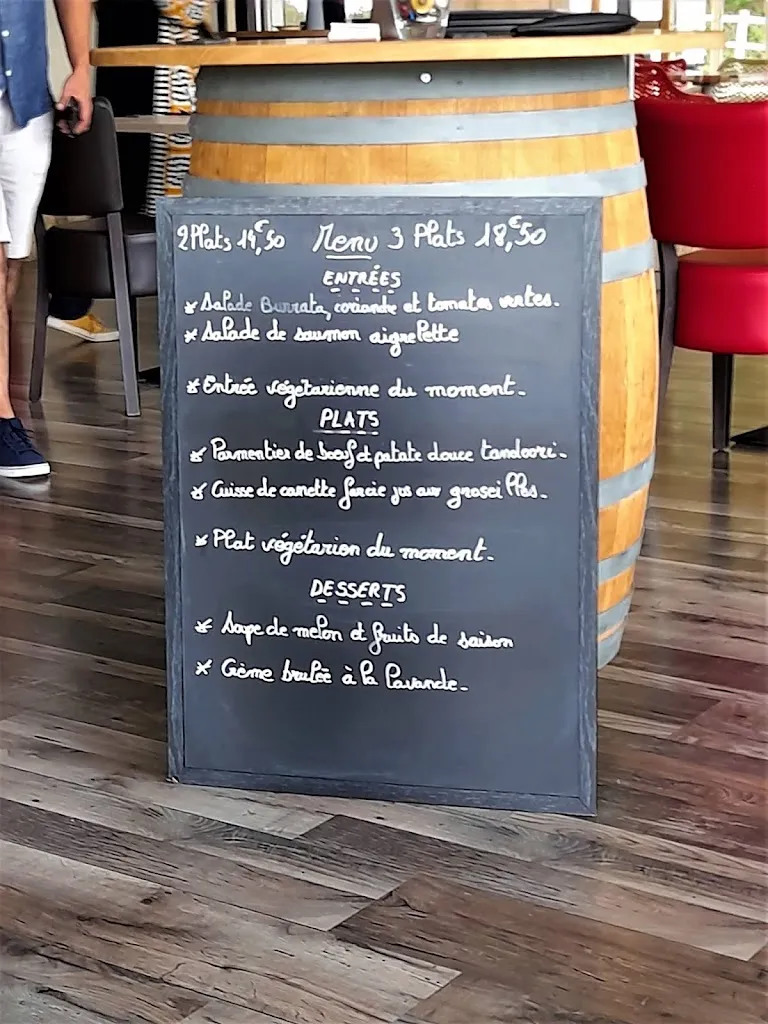 2 Plats 14,50€ Menu 3 Plats 18,50€
ENTRÉES
* Salade Burrata, coriandre et tomates vertes.
* Salade de saumon aigrelette
* Entrée végétarienne du moment.
PLATS
* Parmentier de boeuf et patate douce tandoori.
* Cuisse de canette farcie jus aux groseilles.
* Plat végétarien du moment.
DESSERTS
* Soupe de melon et fruits de saison
* Crème brulée à la lavande.